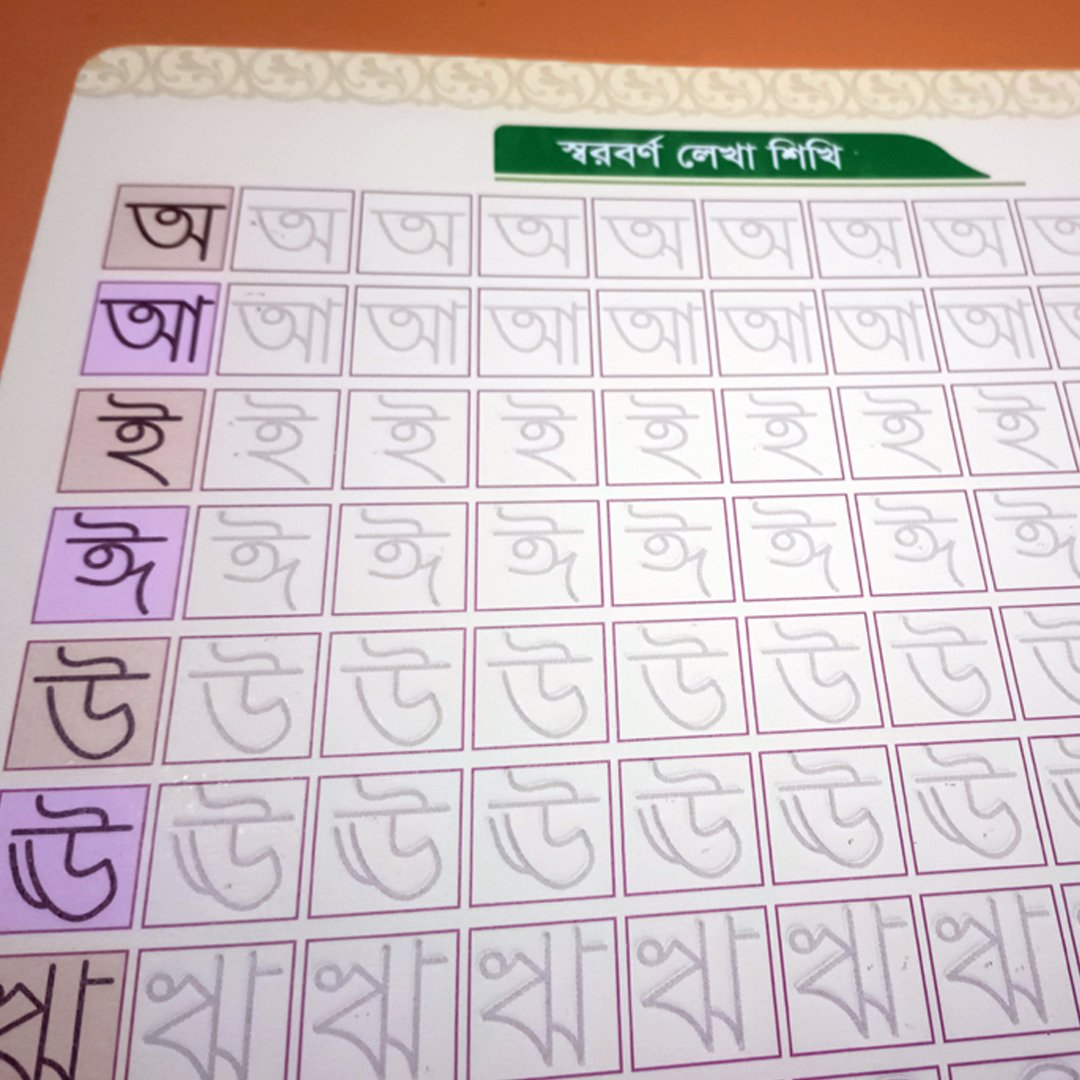 স্বরবর্ণ লেখা শিখি
অ অ অ অ অ অ অ অ
আ আ আ আ আ আ আ আ
ই ই ই ই ই ই ই ই
ঈ ঈ ঈ ঈ ঈ ঈ ঈ ঈ
উ উ উ উ উ উ উ
ঊ ঊ ঊ ঊ ঊ ঊ ঊ
ঋ ঋ ঋ ঋ ঋ ঋ ঋ